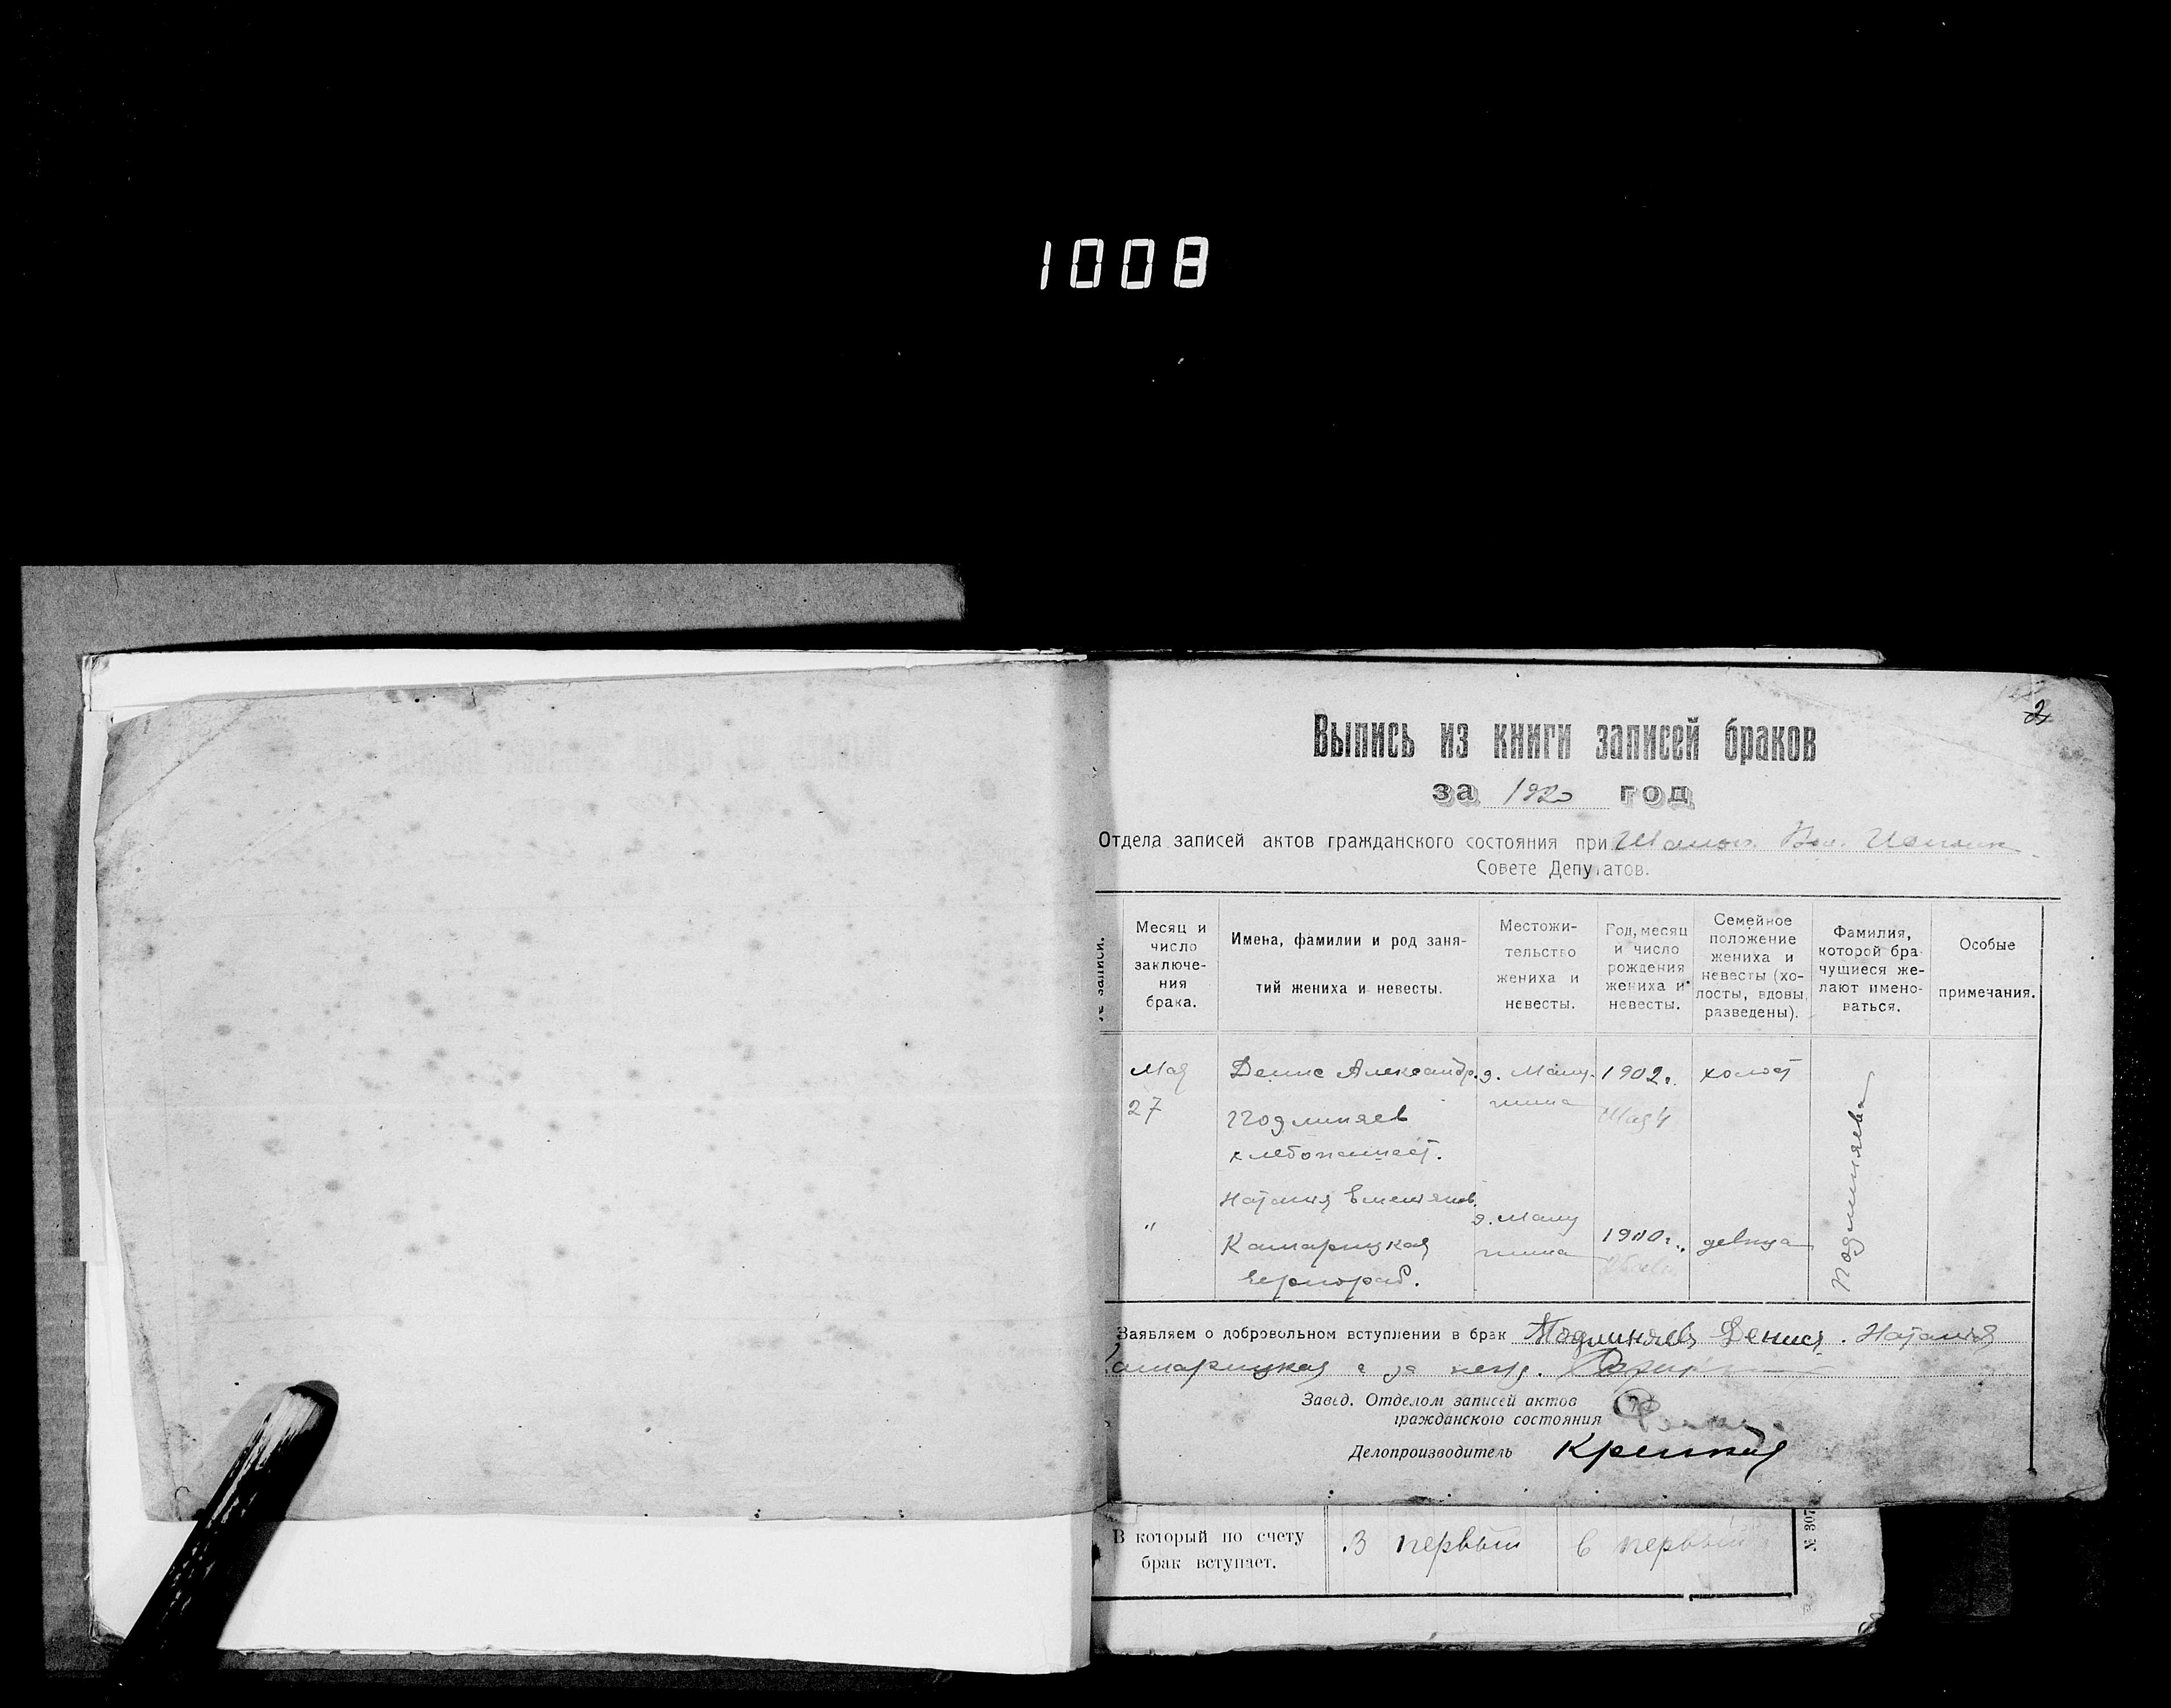 1008
2
Выпись из книги записей браков
за 1920 год
Отдела записей актов гражданского состояния при
Совете Депутатов.
записи.
Месяц и число заключе-ния брака.
Имена, фамилии и род заня-тий жениха и невесты.
Местожи-тельство жениха и невесты.
Год, месяц и число рождения жениха и невесты.
Семейное положение жениха и невесты (хо-лосты, вдовы, разведены).
Фамилия, которой бра-чущиеся же-лают имено-ваться.
Особые примечания.
Мая
27
Денис Александр.
Подлиняев
хлебопашест.
д.
1902 г.
Мая 4
холост
Подлиняева
"
Наталия
Камарицкая
чернораб.
д.
1900 г.
девица
Заявляем о добровольном вступлении в брак Подлиняев Денис. Наталия
Камарицкая а за негр.
Завед. Отделом записей актов
гражданского состояния
Делопроизводитель
В который по счету
брак вступает.
В первый
в первый
№ 307